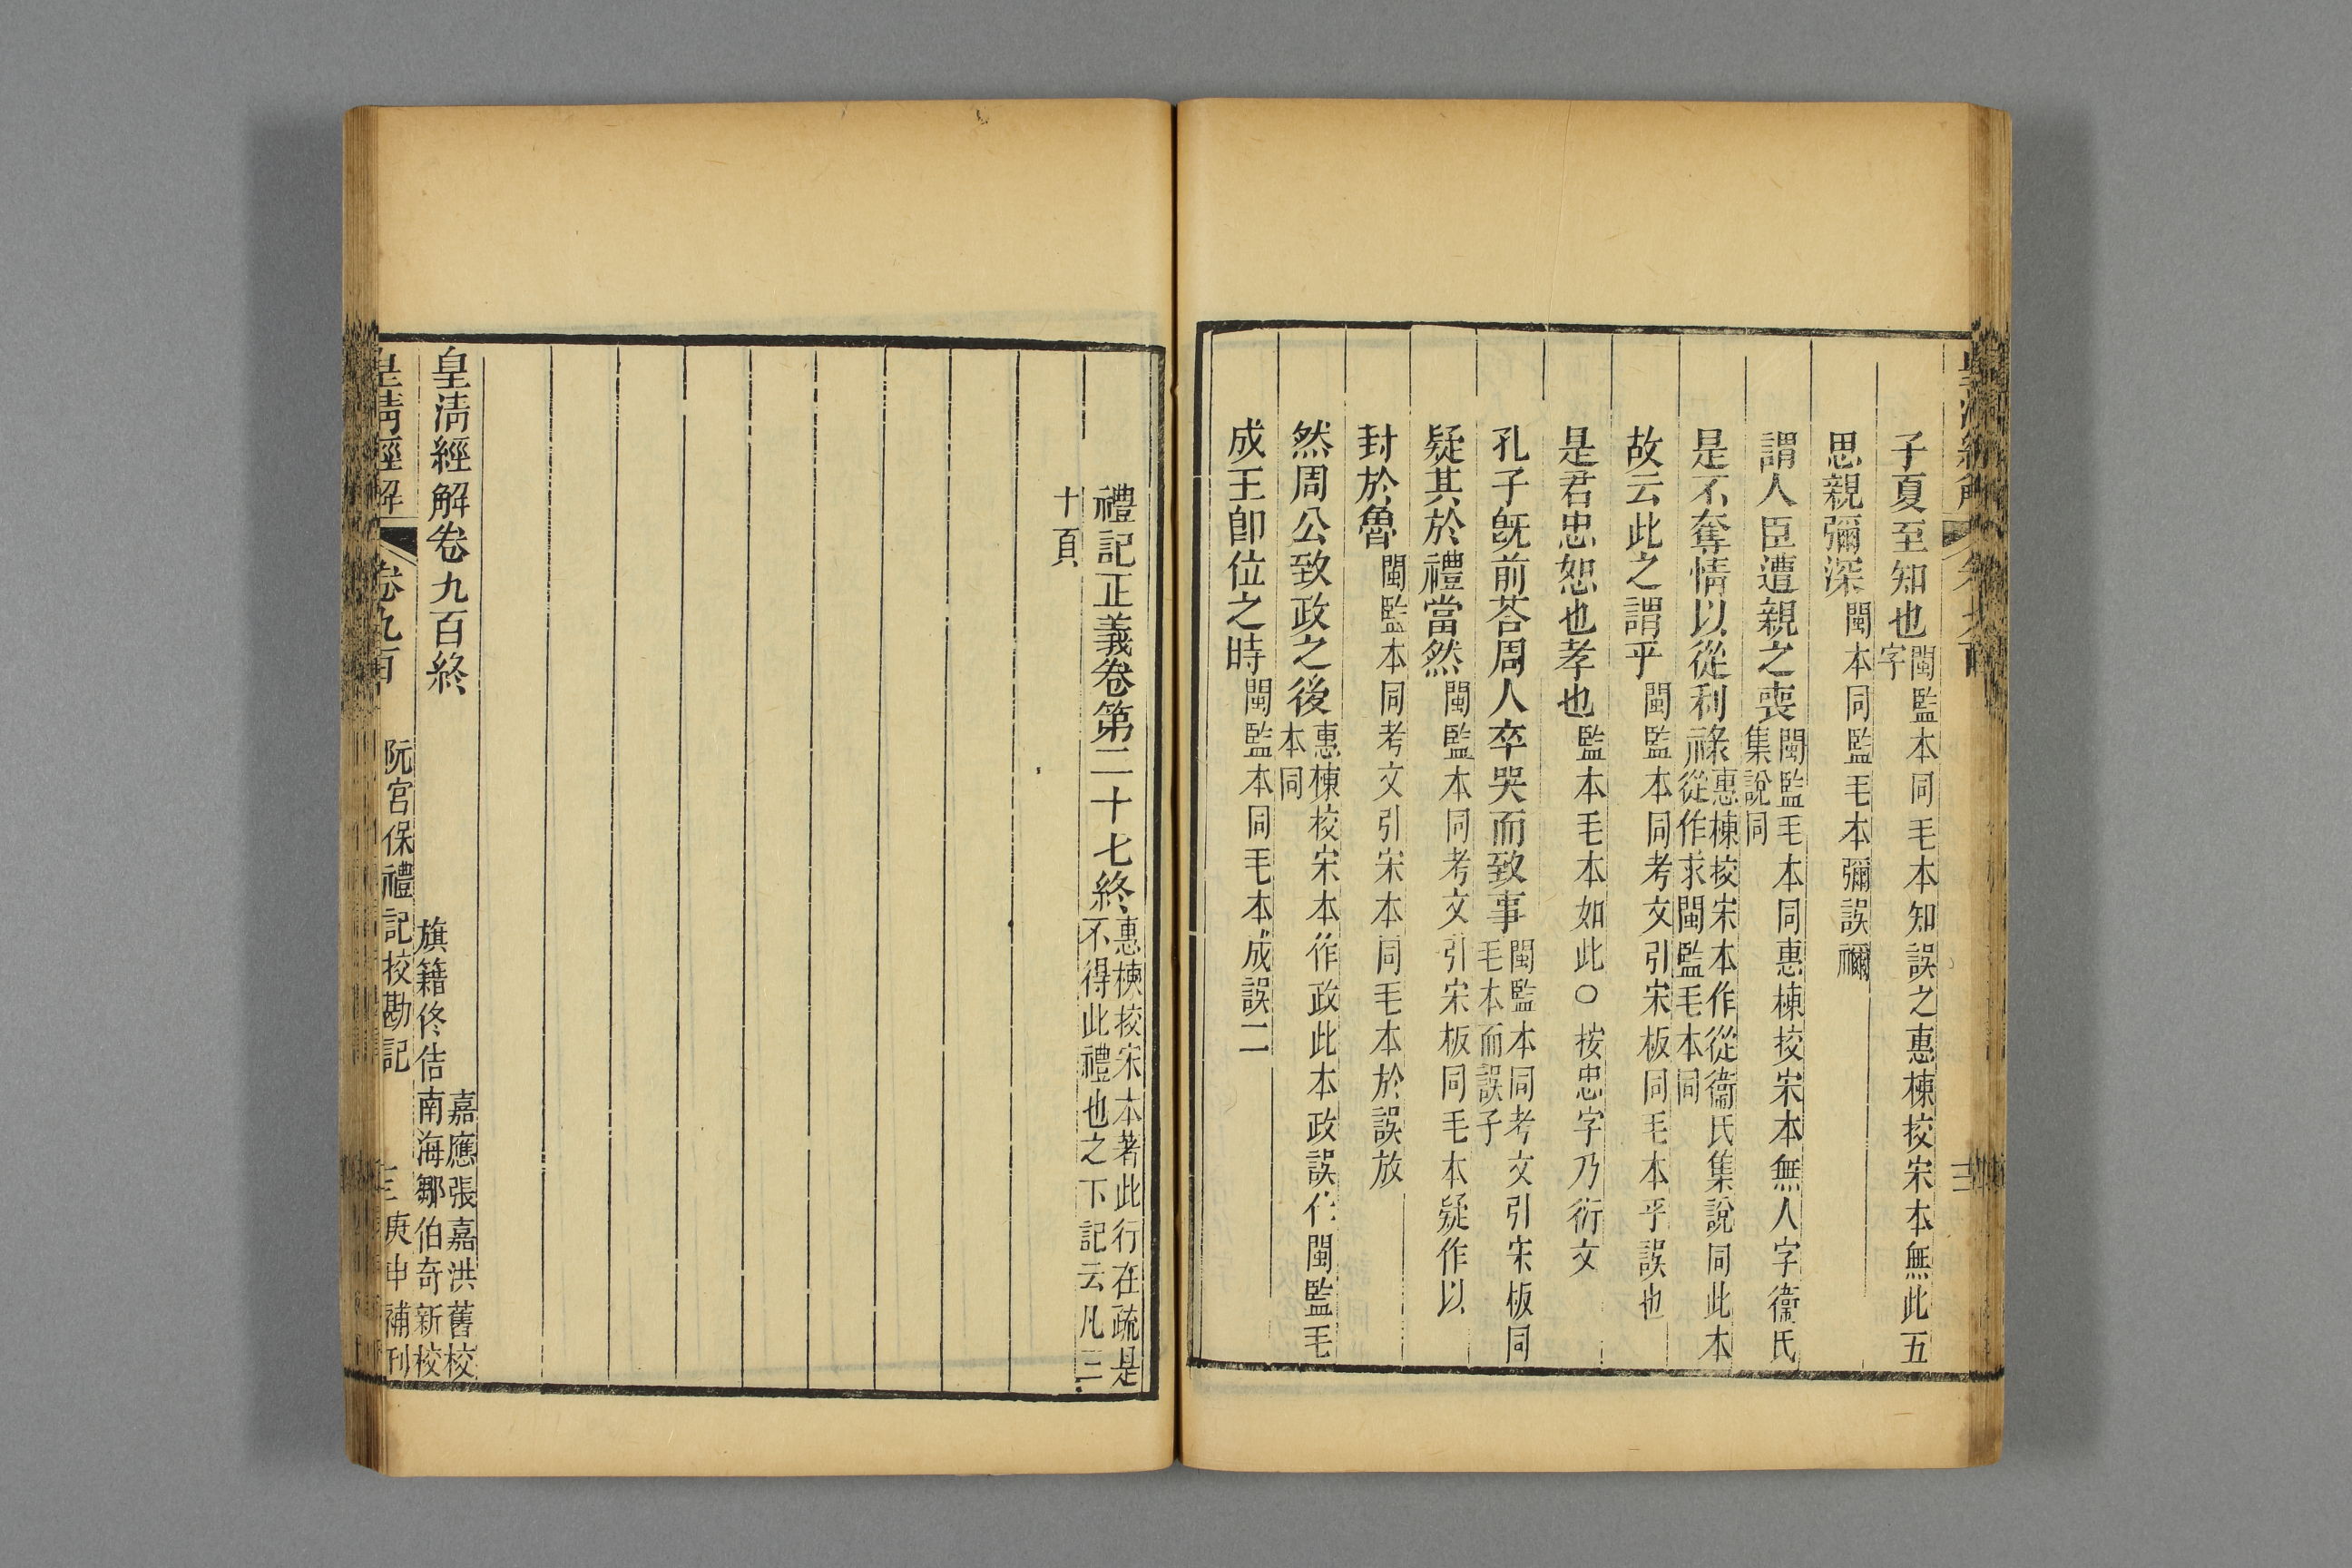 子夏至知也閩監本同毛本知誤之惠棟挍宋本無此五字
思親彌深閩本同監毛本彌誤禰
謂人臣遭親之喪閩監毛本同惠棟挍宋本無人字衞氏集說同
是不奪情以從利祿惠棟挍宋本作從衞氏集說同此本從作求閩監毛本同
故云此之謂乎閩監本同考文引宋板同毛本乎誤也
是君忠恕也孝也監本毛本如此○按忠字乃衍文
孔子旣前荅周人卒哭而致事閩監本同考文引宋板同毛本而誤子
疑其於禮當然閩監本同考文引宋板同毛本疑作以
封於魯閩監本同考文引宋本同毛本於誤放
然周公致政之後惠棟挍宋本作政此本政誤仕閩監毛本同
成王卽位之時閩監本同毛本成誤二
禮記正義卷第二十七終惠棟挍宋本著此行在疏是不得此禮也之下記云凡三
十頁
皇淸經解卷九百終
嘉應張嘉洪舊校
旗籍佟佶南海鄒伯奇新校
皇淸經解 卷九百 阮宮保禮記挍勘記 三 庚申補刊